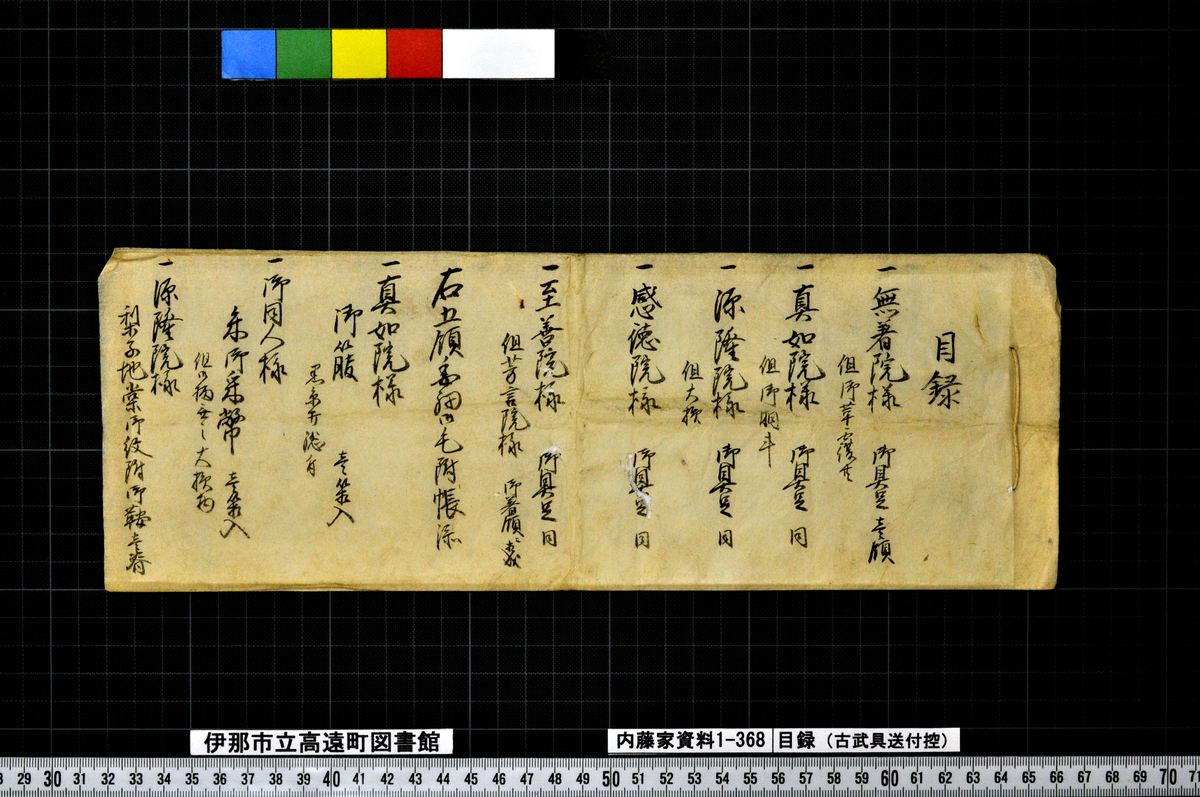 目録
一 無著院様 御具足 壱領
但御草
一 真如院様 御具足 同
但御胴斗
一 源隆院様 御具足 同
但大振
一 感徳院様 御具足 同
一 至善院様 御具足 同
但芳言院様 御着領
右五領委細御毛附帳添
一 真如院様
御箙 壱箱入
黒糸
一 御同人様
朱御采幣 壱箱入
但御柄
一 源隆院様
梨子地棠御紋附御鞍 壱脊
伊那市立高遠町図書館
内藤家資料1-368 目録（古武具送付控）
28 29 30 31 32 33 34 35 36 37 38 39 40 41 42 43 44 45 46 47 48 49 50 51 52 53 54 55 56 57 58 59 60 61 62 63 64 65 66 67 68 69 70 71